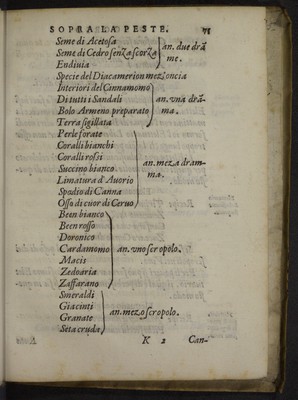 SOPRA LA PESTE. 75
Seme di Acetosa
Seme di Cedro senza scorza
an. due drã
me.
Endiuia
Specie del Diacamerion mez'oncia
Interiori del Cinnamomo
Di tutti i Sandali
an. vna drã-
Bolo Armeno preparato
ma.
Terra sigillata
Perle forate
Coralli bianchi
Coralli rossi
an. meza dram-
Succino bianco
ma.
Limatura d'Auorio
Spodio di Canna
Osso di cuor di Ceruo
Been bianco
Been rosso
Doronico
Cardamomo
an. vno scropolo.
Macis
Zedoaria
Zaffarano
Smeraldi
Giacinti
an. mezo scropolo.
Granate
Seta cruda
K 2 Can-